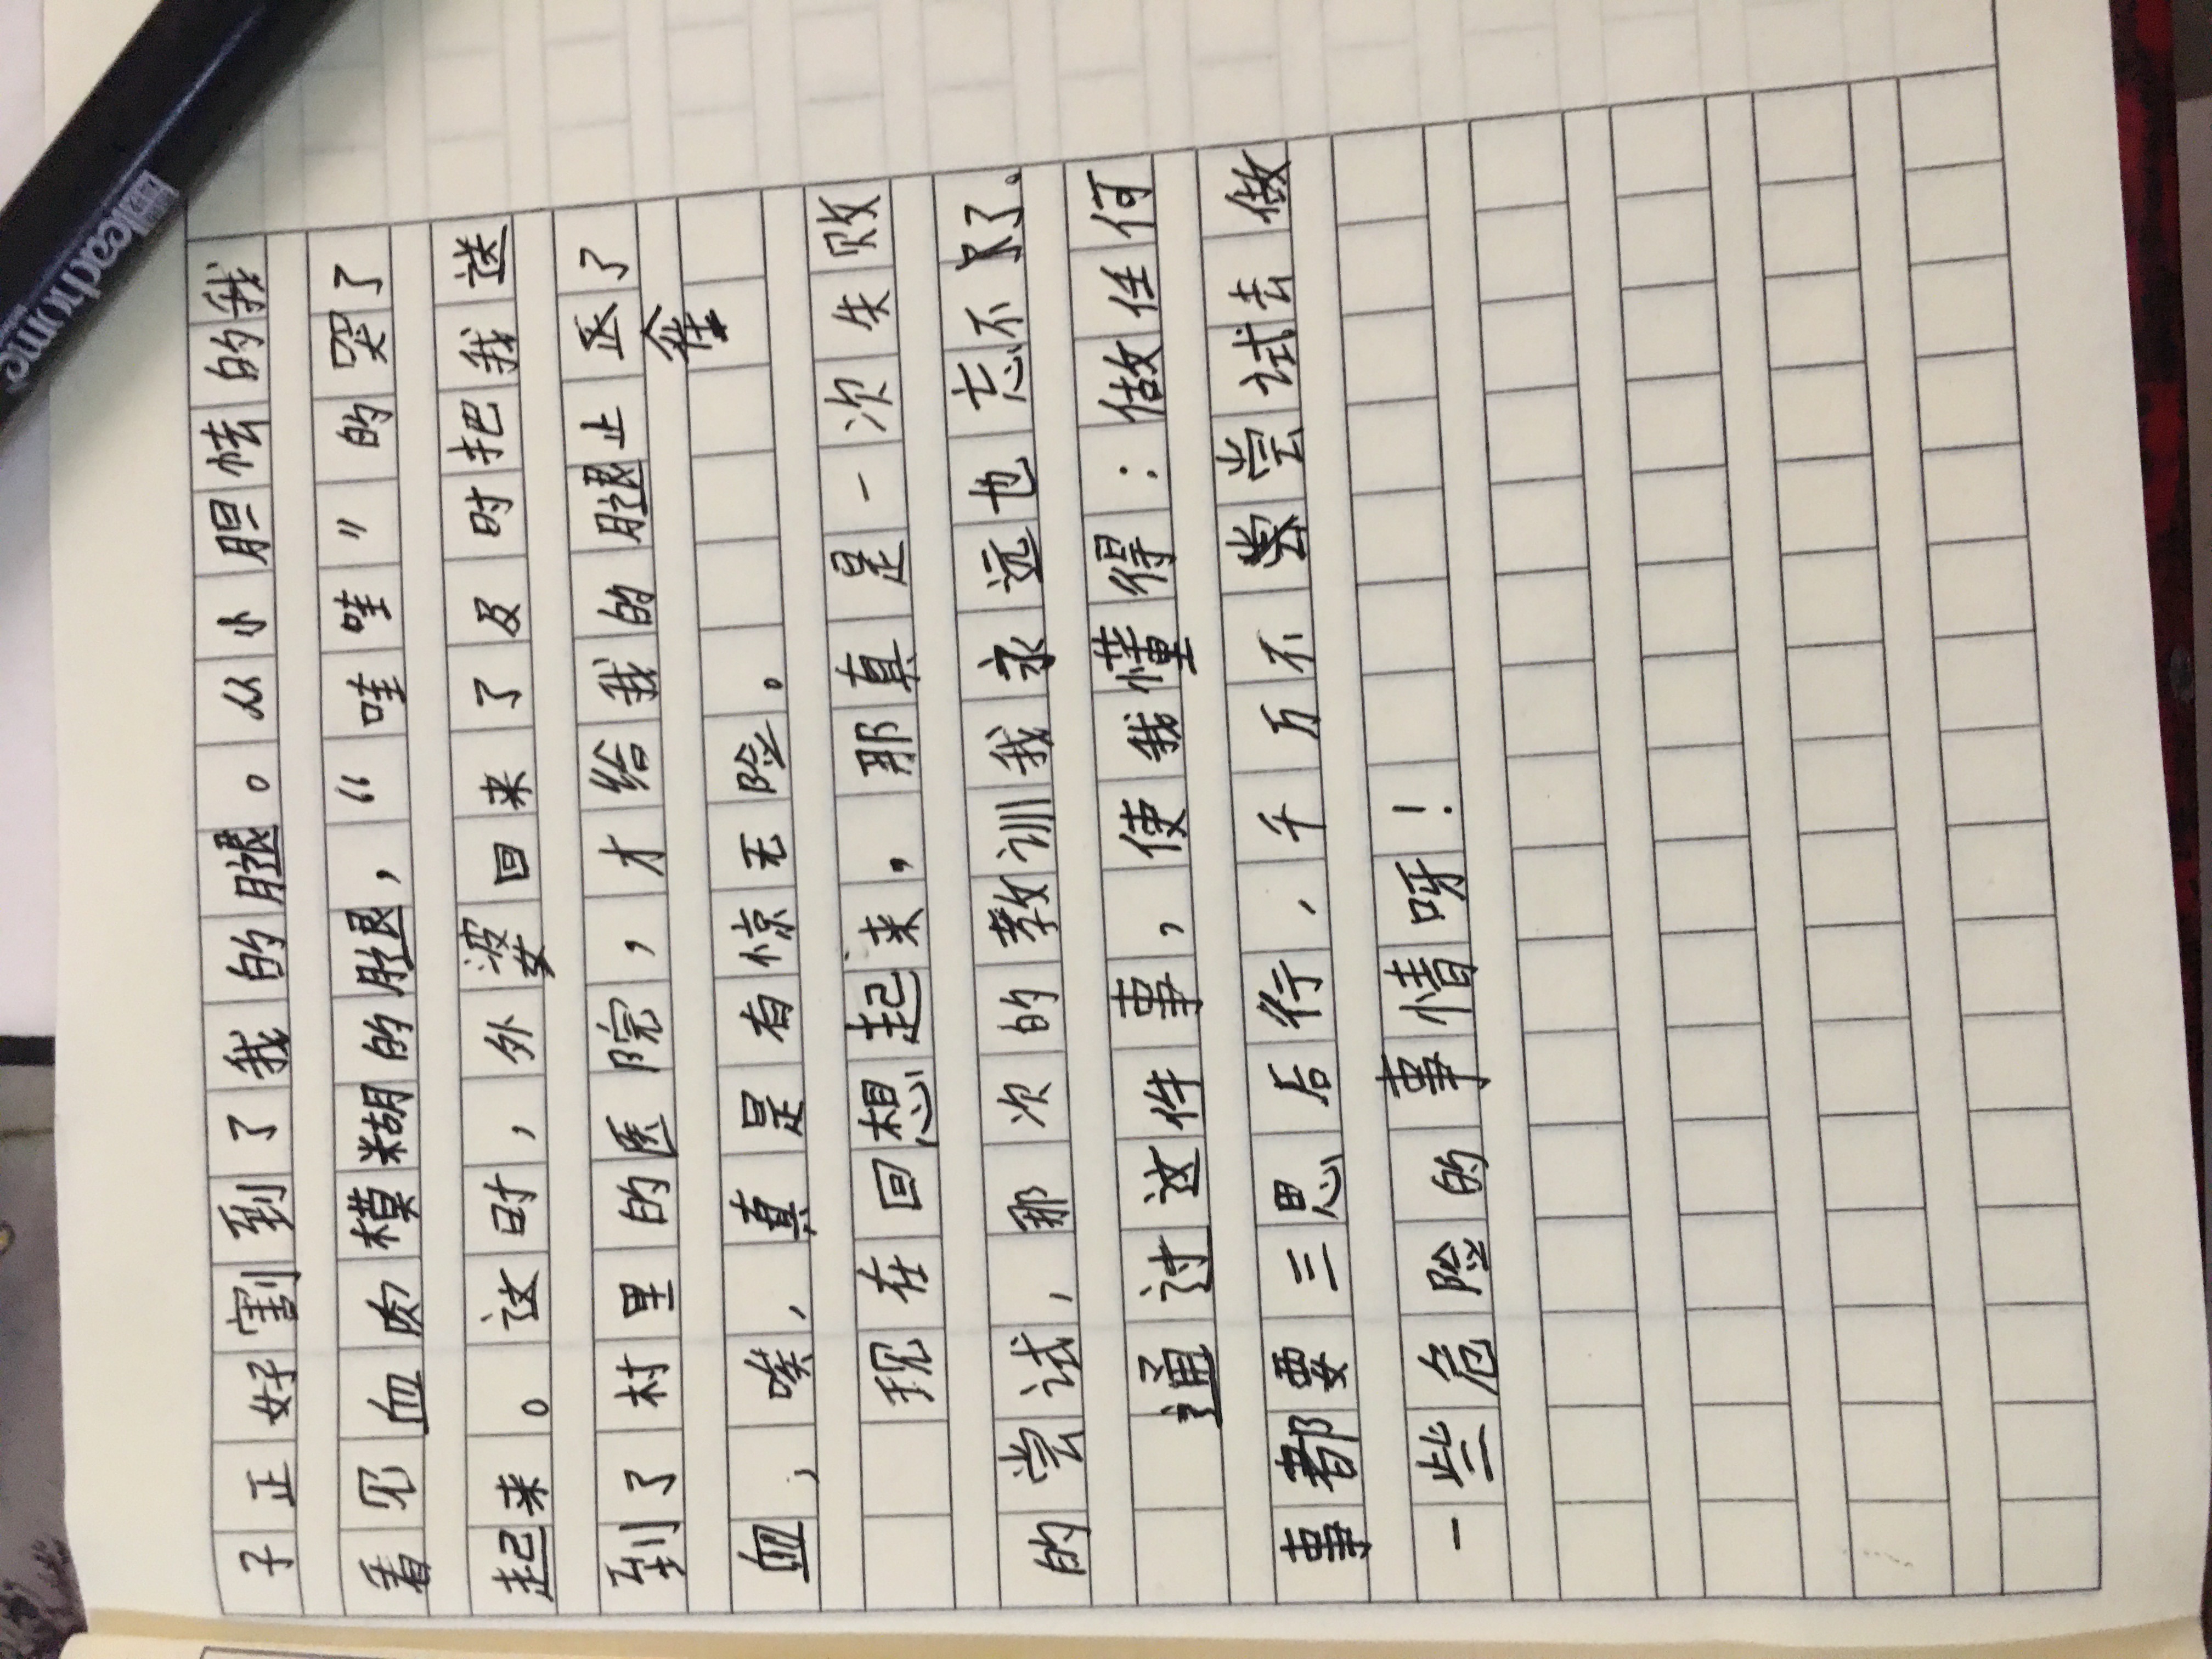 子正好割到了我的腿。从小胆怯的我
看见血肉模糊的腿，“哇哇”的哭了
起来。这时，外婆回来了及时把我送
到了村里的医院，才给我的腿止医了
血，唉，真是有惊无险。
现在回想起来，那真是一次失败
的尝试，那次的教训我永远也忘不了。
通过这件事，使我懂得：做任何
事都要三思后行，千万不尝试去做
一些危险的事情呀！
TeachOne